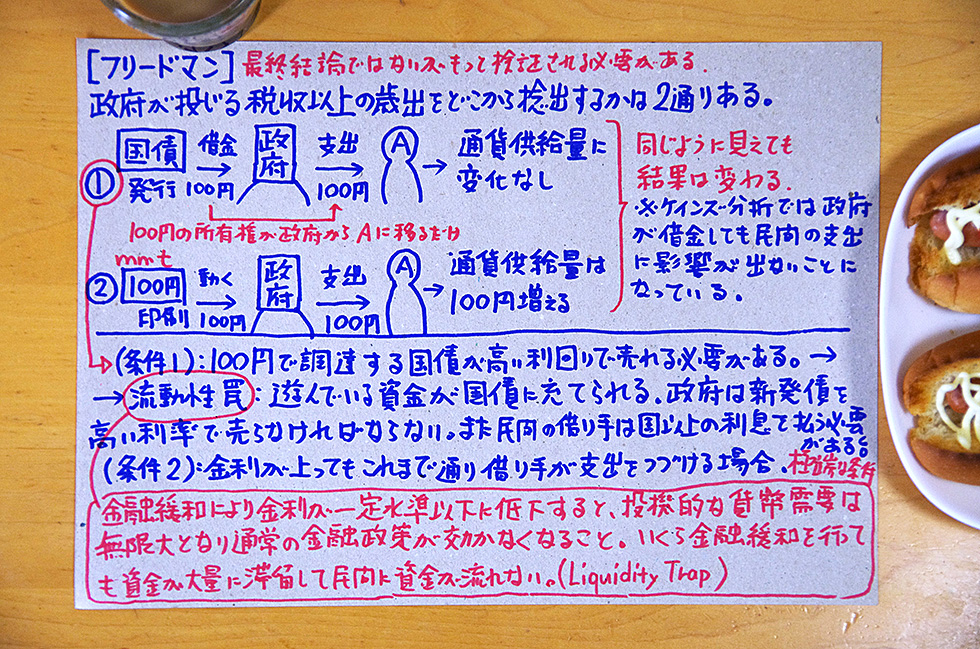 [フリードマン] 最終結論ではないがもって検証される必要がある.
政府が投じる税収以上の歳出をどこから捻出するかは2通りある。
① 国債 借金 政府 支出 A 通貨供給量に
発行 100円 100円 変化なし
100円の所有権が政府からAに移るだけ
mmt
② 100円 動く 政府 支出 A 通貨供給量は
印刷 100円 100円 100円増える
同じように見えても
結果は変わる.
※ケインズ分析では政府
が借金しても民間の支出
に影響が出ないことに
なっている。
(条件1):100円で調達する国債が高い利回りで売れる必要がある。→
→ 流動性罠:遊んでいる資金が国債に充てられる。政府は新発債を
高い利率で売らなければならない。また民間の借り手は国以上の利息で払う必要
がある。
(条件2):金利が上ってもこれまで通り借り手が支出をつづける場合. 極端な条件
金融緩和により金利が一定水準以下に低下すると、投機的な貨幣需要は
無限大となり通常の金融政策が効かなくなること。いくら金融緩和を行って
も資金が大量に滞留して民間に資金が流れない。(Liquidity Trap)